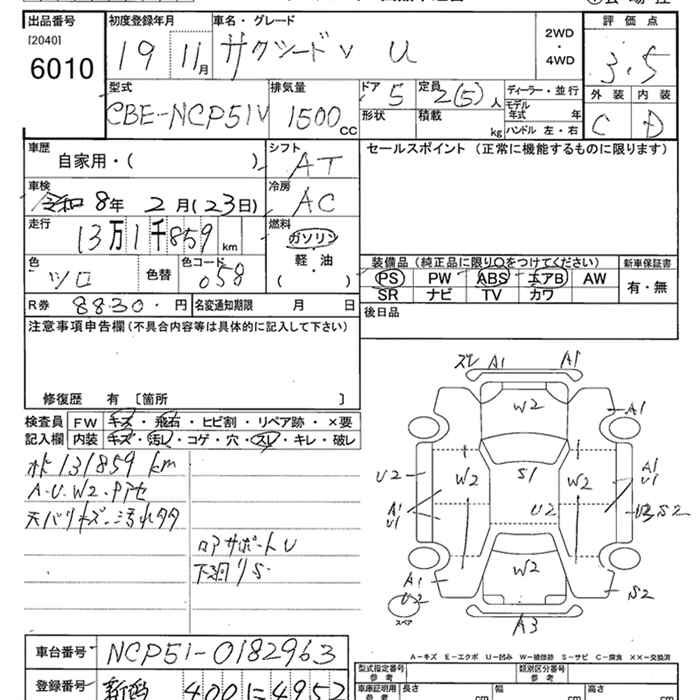 出品番号 初度登録年月 車名・グレード 2WD・4WD 評価点
[2040]
6010 19 11月 サクシードV U 3.5
外装 内装
C D
型式 排気量 ドア 定員 ディーラー・並行
CBE-NCP51V 1500cc 5 2(5)人 モデル年式 年
形状 積載 kg ハンドル 左・右
車歴 シフト セールスポイント (正常に機能するものに限ります)
自家用・( ) AT
車検 冷房
令和 8年 2月(23日) AC
走行 燃料
13万1千859km ガソリン
色 色替 色コード 軽・油
シロ 058 ( )
装備品 (純正品に限り○をつけてください) 新車保証書
PS PW ABS エアB AW 有・無
SR ナビ TV カワ
R券 8830.円 名変通知期限 月 日 後日品
注意事項申告欄(不具合内容等は具体的に記入して下さい)
修復歴 有 〔箇所 〕
検査員 FW キズ・飛石・ヒビ割・リペア跡・×要
記入欄 内装 キズ・汚レ・コゲ・穴・スレ・キレ・破レ
131859 km
A・U・W2・
天バリキズ・汚れタタ
ロアサポートU
下廻りS
スレ A1 A1
W2 A1
U2 W2 S1 W2 A1 U1
A1 U1 U2 S2
W2
A1 U2 S2
スペア A3
A-キズ E-エクボ U-凹み W-補修跡 S-サビ C-腐食 ××-交換済
車台番号 NCP51-0182963
型式指定番号 参考 類別区分番号 参考
登録番号 新潟 400 に 4952
車庫証明用 参考 長さ cm 幅 cm 高さ cm